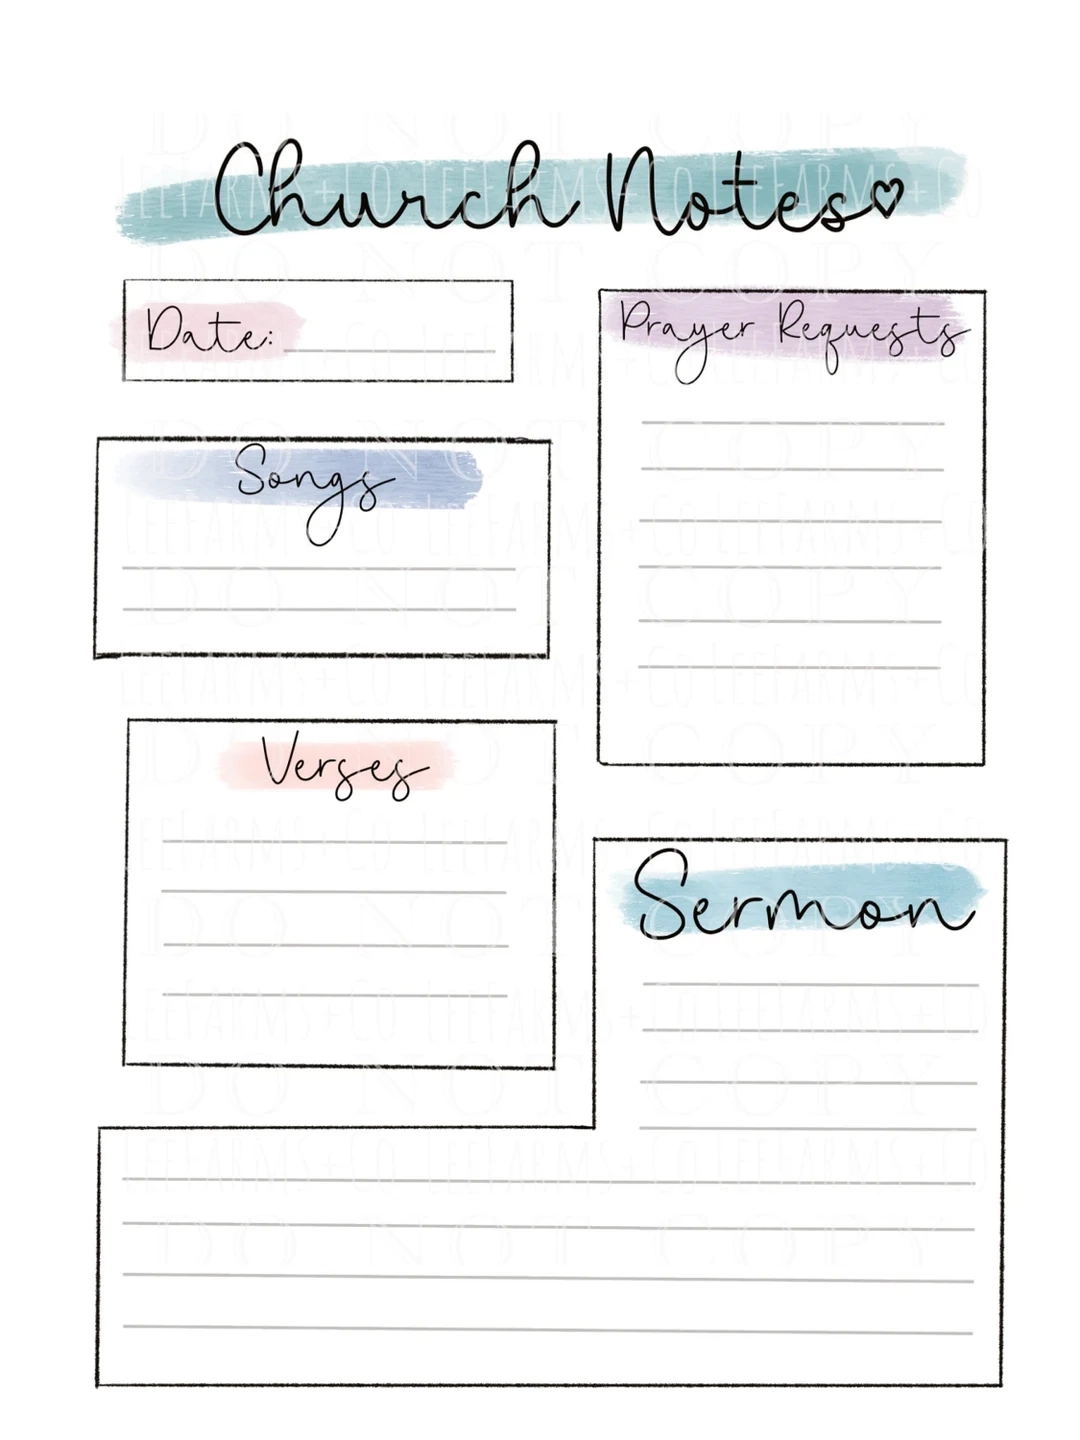 DO NOT COPY
Church Notes
LeeFarms+Co LeeFarms+Co
DO NOT COPY
Date:
Prayer Requests
LeeFarms+Co LeeFarms+Co
DO NOT COPY
Songs
LeeFarms+Co LeeFarms+Co
DO NOT COPY
LeeFarms+Co LeeFarms+Co
DO NOT COPY
Verses
LeeFarms+Co LeeFarms+Co
Sermon
DO NOT COPY
LeeFarms+Co LeeFarms+Co
DO NOT COPY
LeeFarms+Co LeeFarms+Co
DO NOT COPY